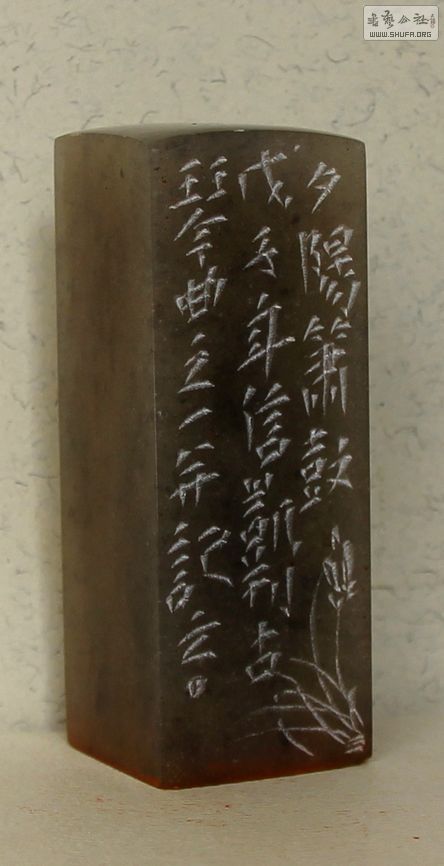 夕陽簫鼓
戊子年信凱刊古
琴曲之一并記之。
書藝公社
WWW.SHUFA.ORG